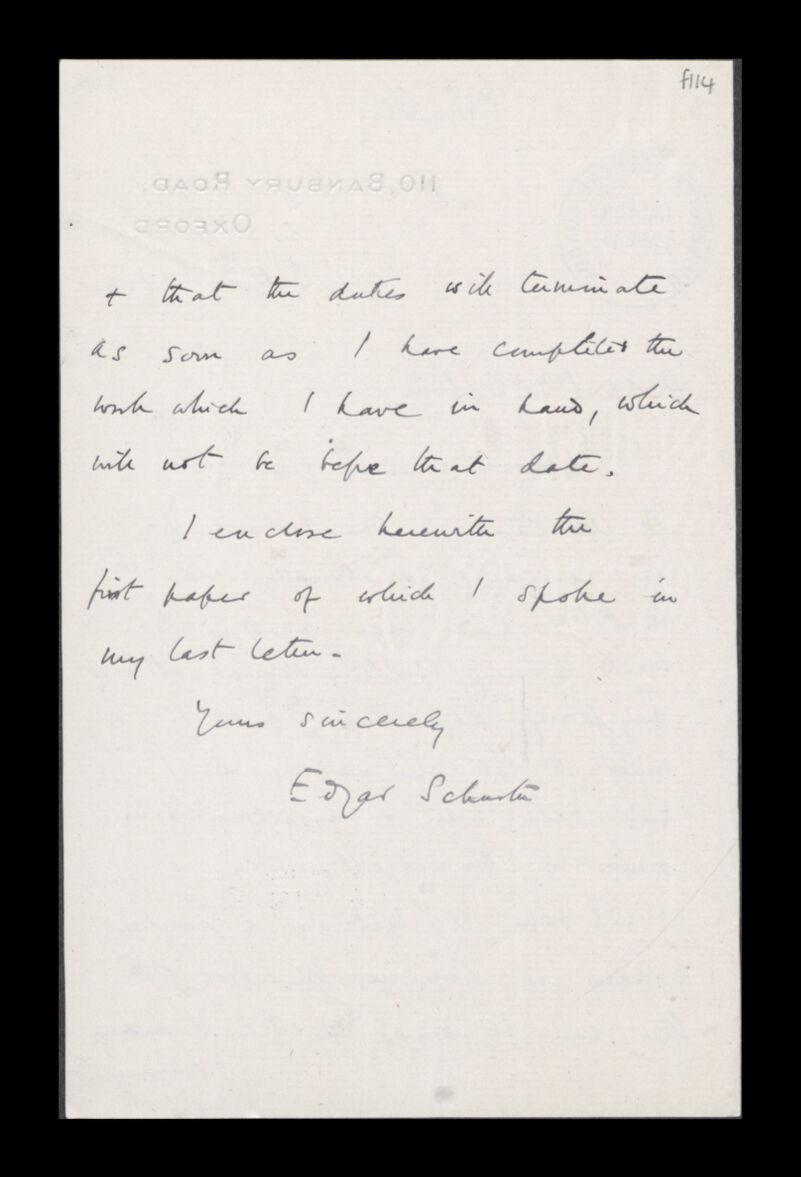 f114
110, BANBURY ROAD,
OXFORD
+ that the duties will terminate
as soon as I have completed the
work which I have in hand, which
will not be before that date.
I enclose herewith the
first paper of which I spoke in
my last letter.
Yours sincerely
Edgar Schuster